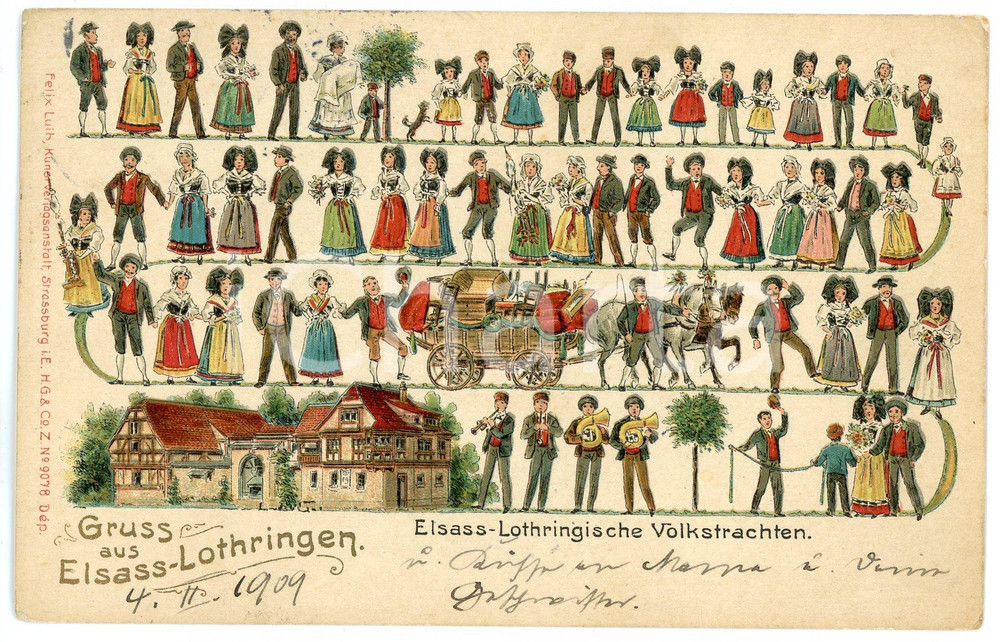 Felix Luib, Kunstverlagsanstalt, Strassburg i.E. H.G.& Co. Z. No 9078 Dép.
Gruss
aus
Elsass-Lothringen.
4. II. 1909
Elsass-Lothringische Volkstrachten.
u. Küsse an Mama u. Deine
Geschwister.